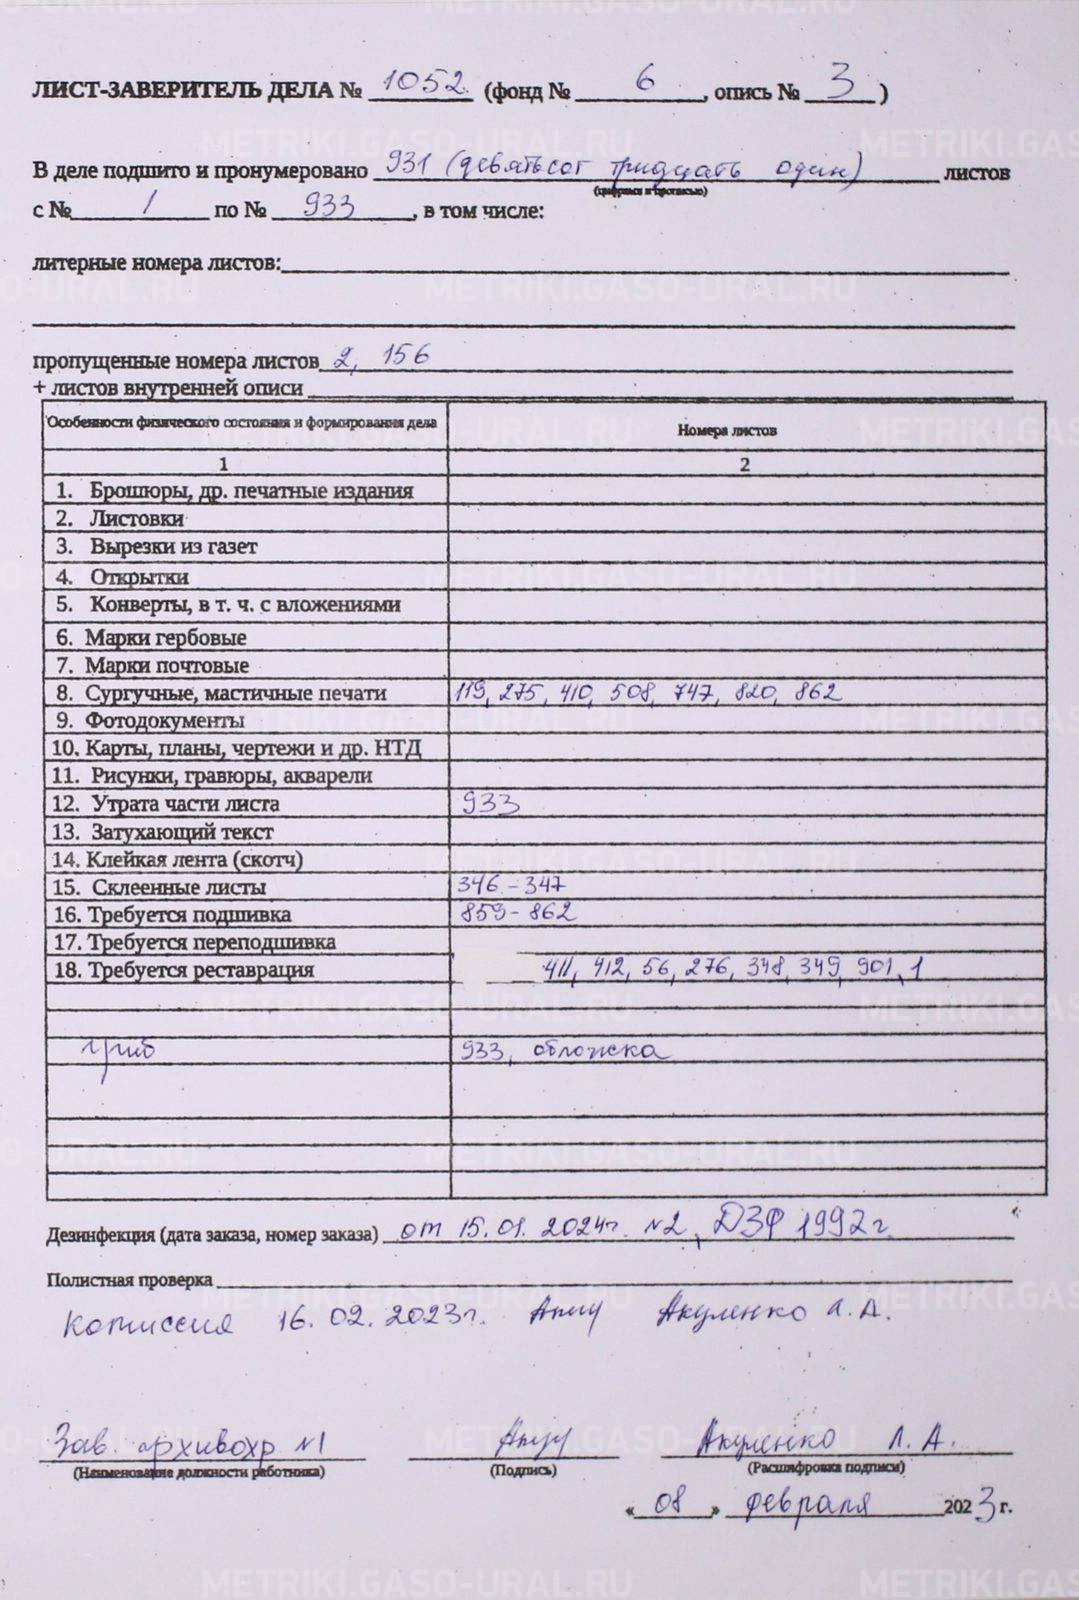 ЛИСТ-ЗАВЕРИТЕЛЬ ДЕЛА № 1052 (фонд № 6, опись № 3)
В деле подшито и пронумеровано 931 (девятьсот тридцать один) листов
(цифрами и прописью)
с № 1 по № 933, в том числе:
литерные номера листов:
пропущенные номера листов 2, 156
+ листов внутренней описи
Особенности физического состояния и формирования дела Номера листов
1 2
1. Брошюры, др. печатные издания
2. Листовки
3. Вырезки из газет
4. Открытки
5. Конверты, в т. ч. с вложениями
6. Марки гербовые
7. Марки почтовые
8. Сургучные, мастичные печати 119, 275, 410, 508, 747, 820, 862
9. Фотодокументы
10. Карты, планы, чертежи и др. НТД
11. Рисунки, гравюры, акварели
12. Утрата части листа 933
13. Затухающий текст
14. Клейкая лента (скотч)
15. Склеенные листы 346-347
16. Требуется подшивка 859-862
17. Требуется переподшивка
18. Требуется реставрация 411, 412, 56, 276, 348, 349, 901, 1
гриб 933, обложка
Дезинфекция (дата заказа, номер заказа) от 15.01.2024г. №2, ДЗФ 1992г.
Полистная проверка
Комиссия 16.02.2023г. Акуленко Л.А.
Зав. архивохр №1 Акуленко Л.А.
(Наименование должности работника) (Подпись) (Расшифровка подписи)
«08» февраля 2023 г.
METRIKI.GASO-URAL.RU